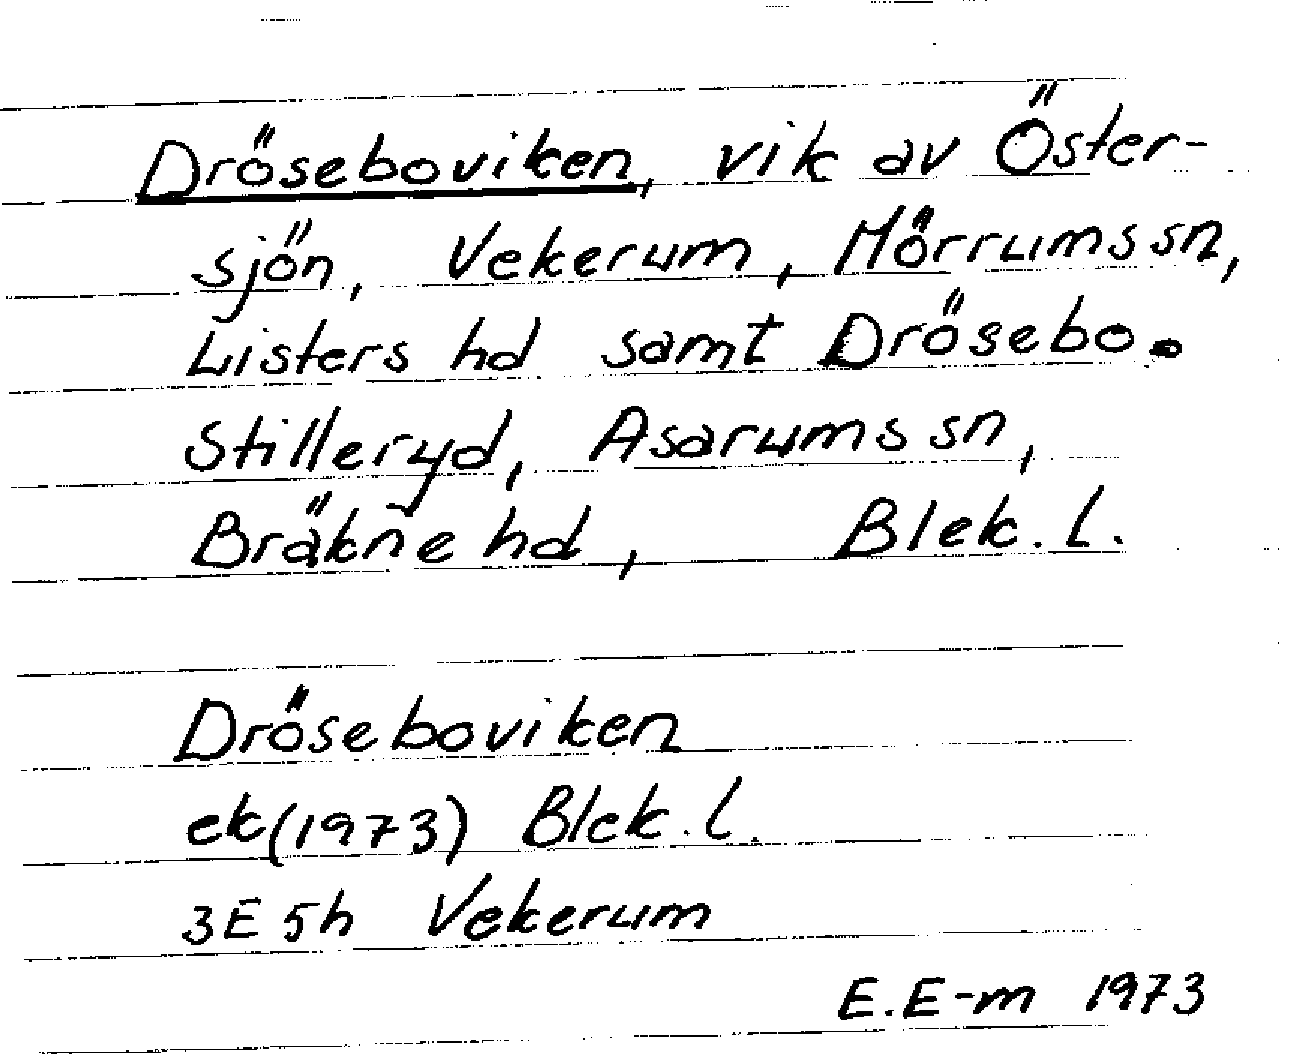 Dröseboviken, vik av Öster-
sjön, Vekerum, Mörrums sn,
Listers hd samt Drösebo.
Stilleryd, Asarums sn,
Bräkne hd, Blek. l.
Dröseboviken
ek(1973) Blek. l.
3E5h Vekerum
E.E-m 1973